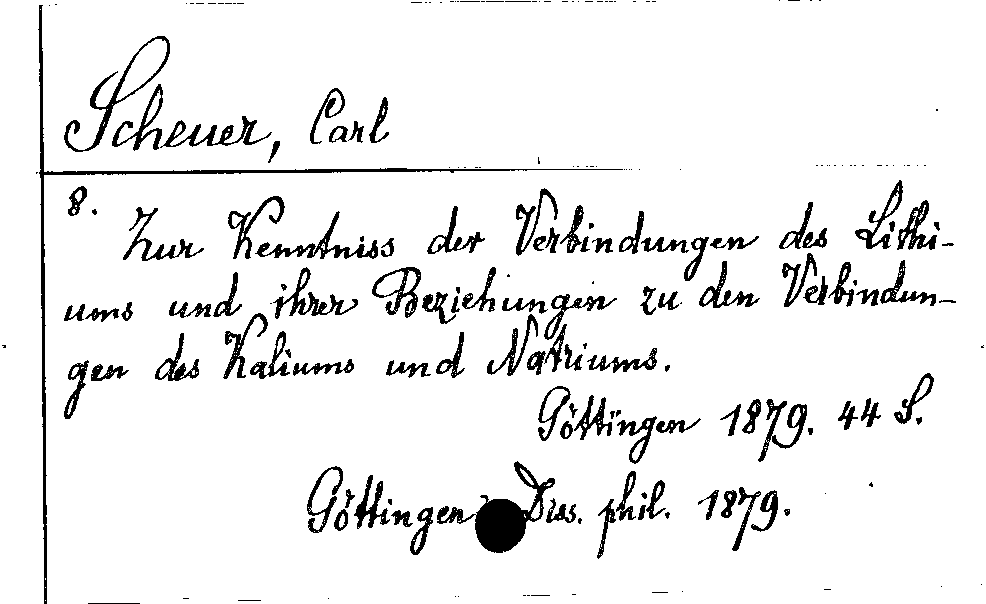 Scheuer, Carl
8.
Zur Kenntniss der Verbindungen des Lithi-
ums und ihrer Beziehungen zu den Verbindun-
gen des Kaliums und Natriums.
Göttingen 1879. 44 S.
Göttingen, Diss. phil. 1879.